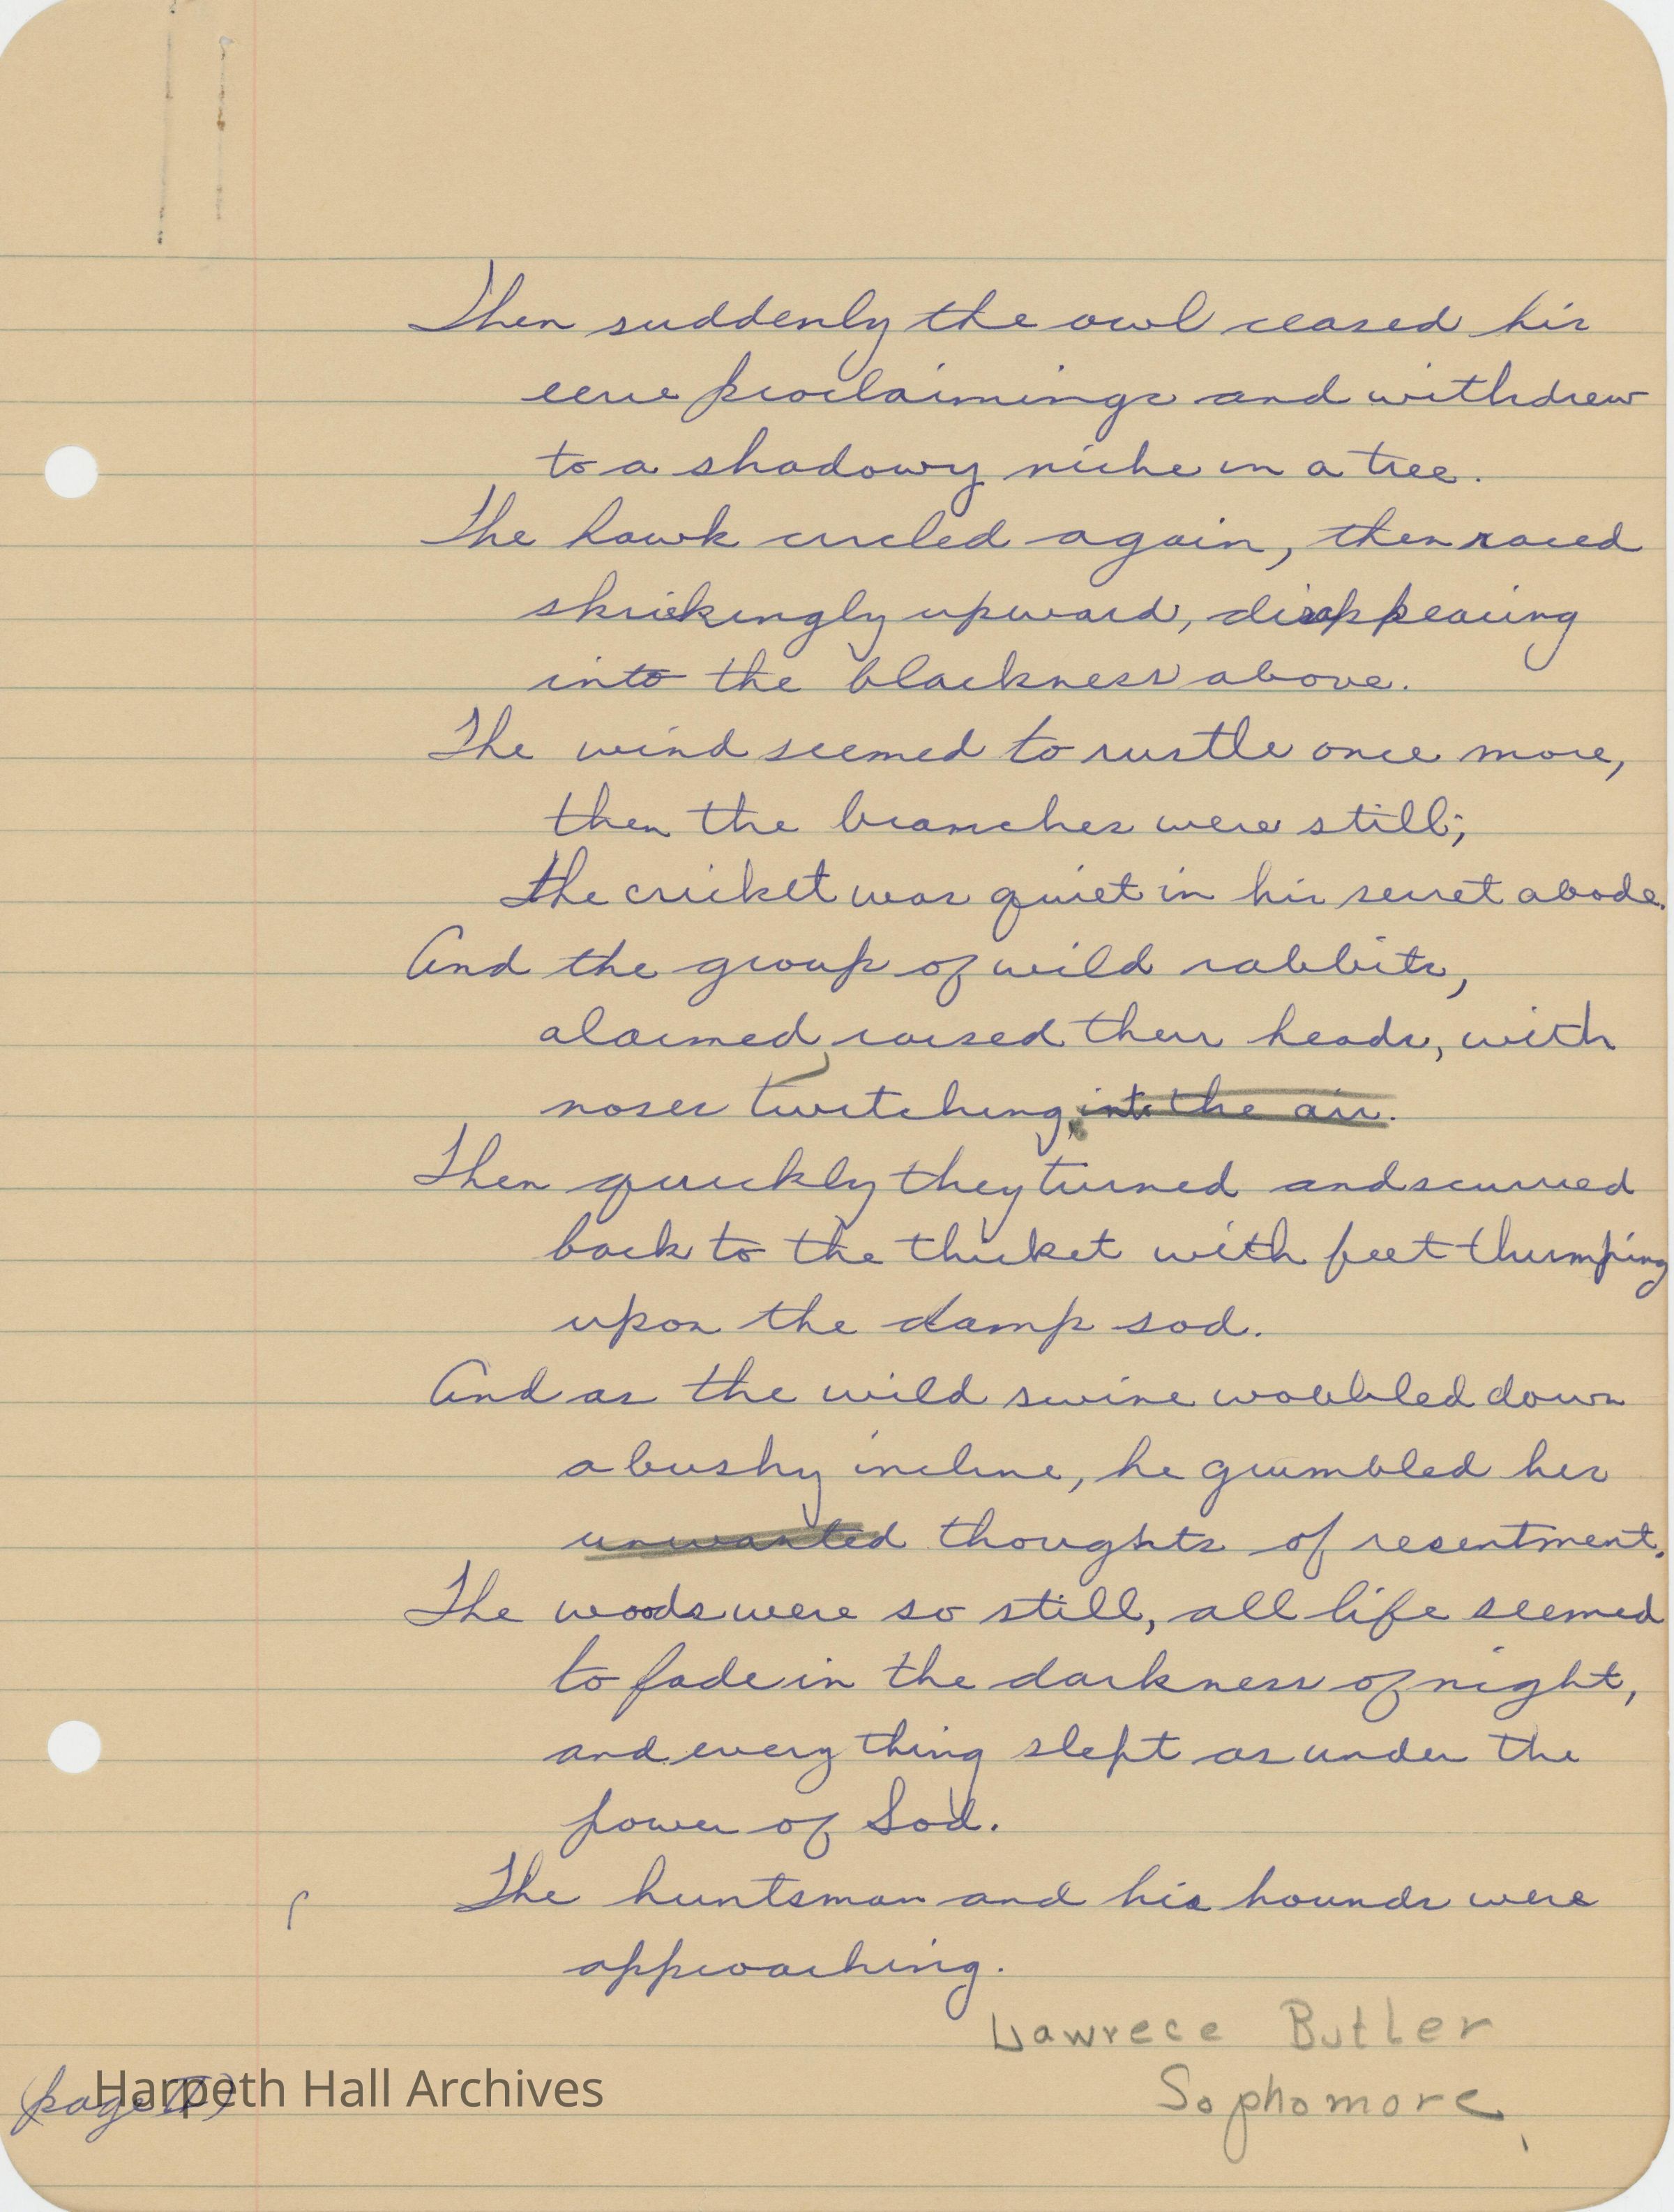 Then suddenly the owl ceased his
eerie proclaimings and withdrew
to a shadowy niche in a tree.
The hawk circled again, then raced
shriekingly upward, disappearing
into the blackness above.
The wind seemed to rustle once more,
then the branches were still;
the cricket was quiet in his secret abode.
And the group of wild rabbits,
alarmed, raised their heads, with
noses twitching, into the air.
Then quickly they turned and scurried
back to the thicket with feet thumping
upon the damp sod.
And as the wild swine wobbled down
a bushy incline, he grumbled his
unwanted thoughts of resentment.
The woods were so still, all life seemed
to fade in the darkness of night,
and every thing slept as under the
power of God.
The huntsman and his hounds were
approaching.
Lawrece Butler
Sophomore
(page II)
Harpeth Hall Archives